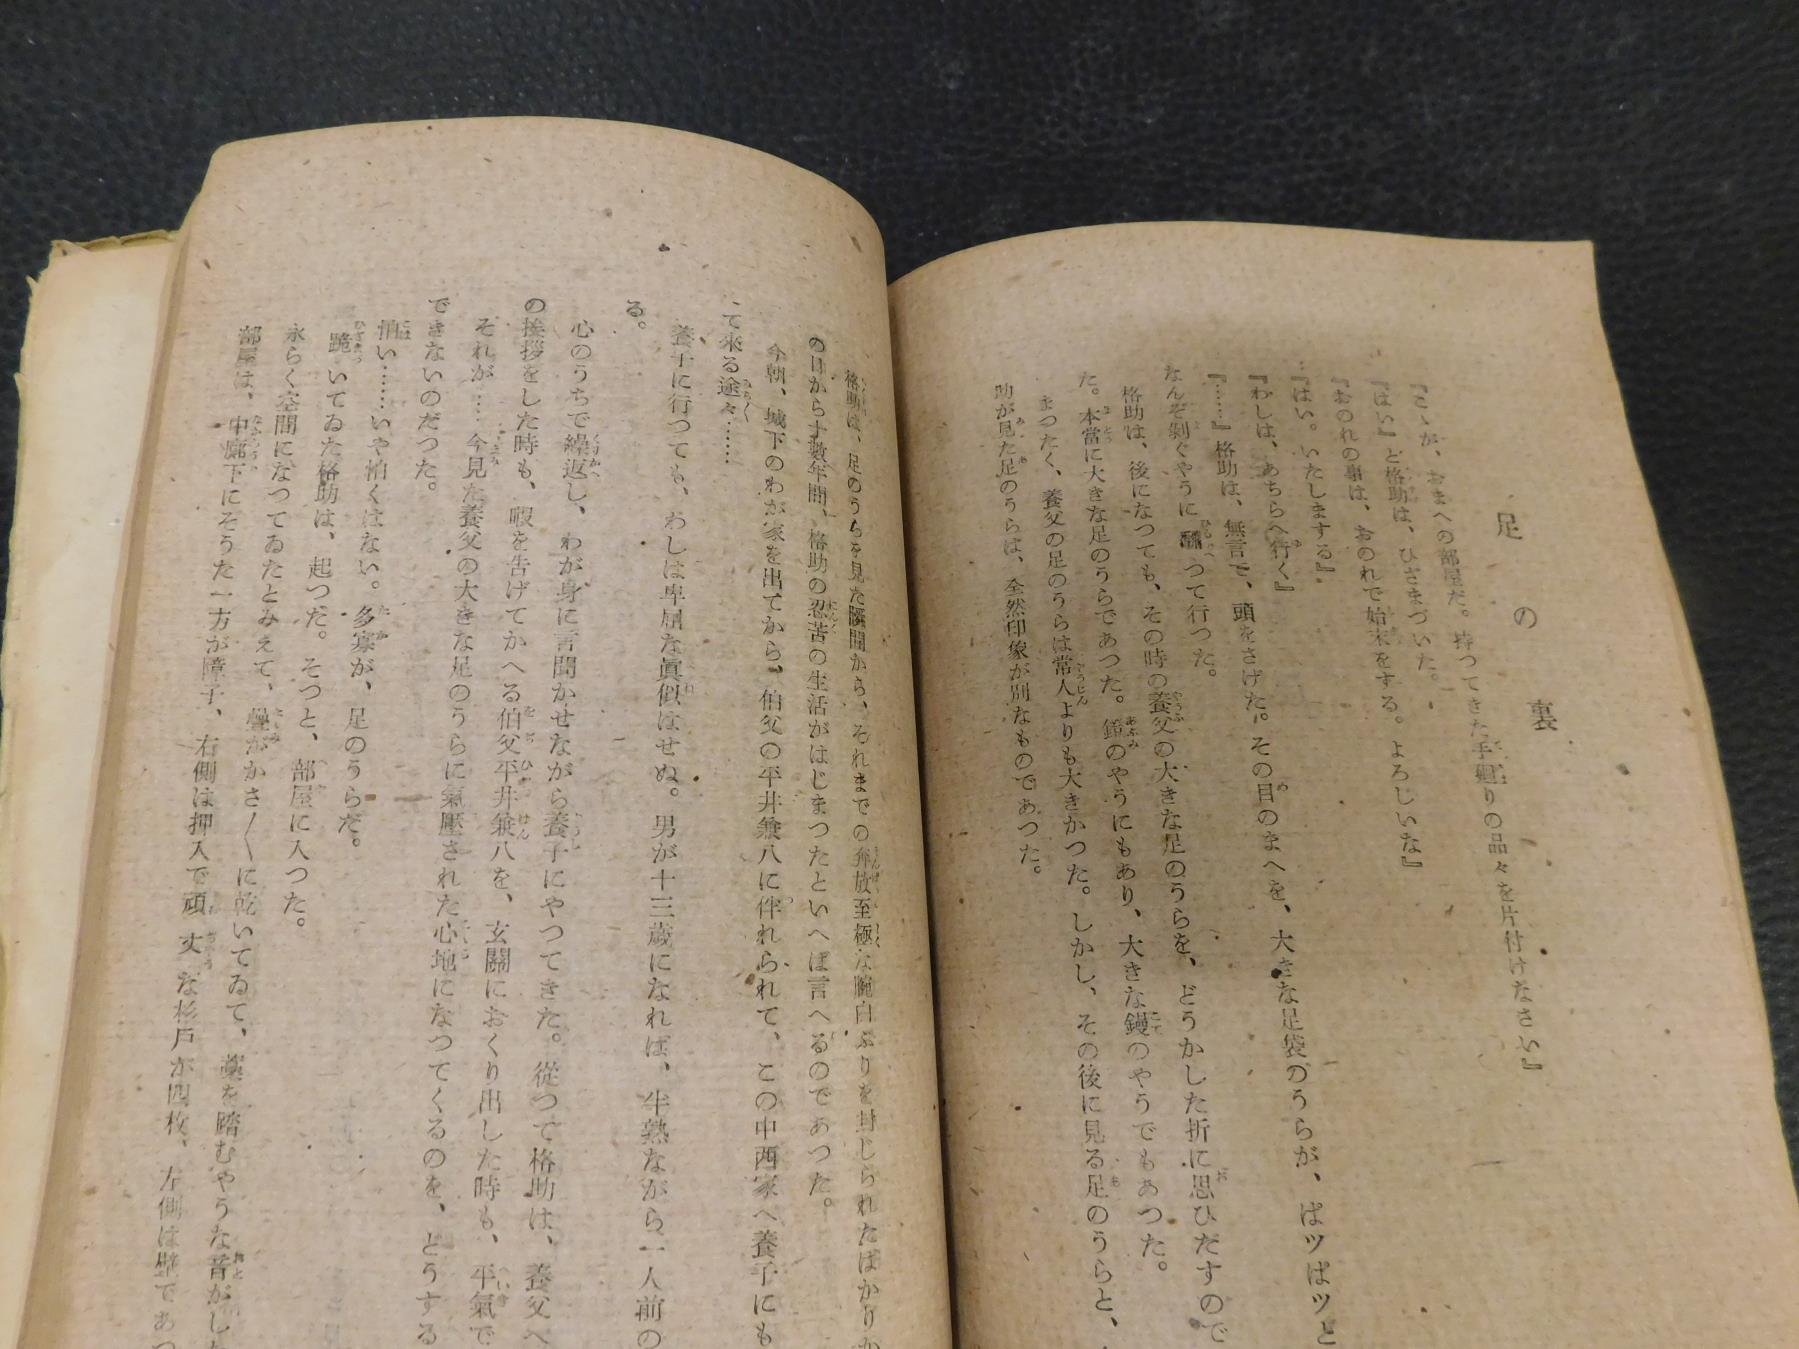 足の裏
『こゝが、おまへの部屋だ。持つてきた手廻りの品々を片付けなさい』
『はい』と格助は、ひざまづいた。
『おのれの事は、おのれで始末をする。よろしいな』
『はい。いたしまする』
『わしは、あちらへ行く』
『……』格助は、無言で、頭をさげた。その目のまへを、大きな足袋のうらが、ぱツぱツと
なんぞ剝ぐやうに飜つて行つた。
格助は、後になつても、その時の養父の大きな足のうらを、どうかした折に思ひだすので
た。本當に大きな足のうらであつた。鐙のやうにもあり、大きな鏝のやうでもあつた。
まつたく、養父の足のうらは常人よりも大きかつた。しかし、その後に見る足のうらと、
助が見た足のうらは、全然印象が別なものであつた。
格助は、足のうらを見た瞬間から、それまでの奔放至極な腕白ぶりを封じられたばかりか
の日から十數年間、格助の忍苦の生活がはじまつたといへば言へるのであつた。
今朝、城下のわが家を出てから、伯父の平井兼八に伴れられて、この中西家へ養子にも
て來る途々……
養子に行つても、わしは卑屈な眞似はせぬ。男が十三歲になれば、半熟ながら一人前の
る。
心のうちで繰返し、わが身に言聞かせながら養子にやつてきた。從つて格助は、養父へ
の挨拶をした時も、暇を告げてかへる伯父平井兼八を、玄關におくり出した時も、平氣で
それが……今見た養父の大きな足のうらに氣壓された心地になつてくるのを、どうする
できないのだつた。
怕い……いや怕くはない。多寡が、足のうらだ。
跪いてゐた格助は、起つた。そつと、部屋に入つた。
永らく空間になつてゐたとみえて、疊がかさ〱に乾いてゐて、藁を踏むやうな音がした
部屋は、中廊下にそうた一方が障子、右側は押入で頑丈な杉戶が四枚、左側は壁であつ